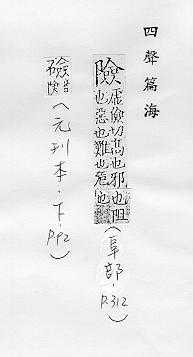 四聲篇海
險虛儉切高也邪也阻
也惡也難也危也
(阜部·P.312)
(元刊本·下·P.92)